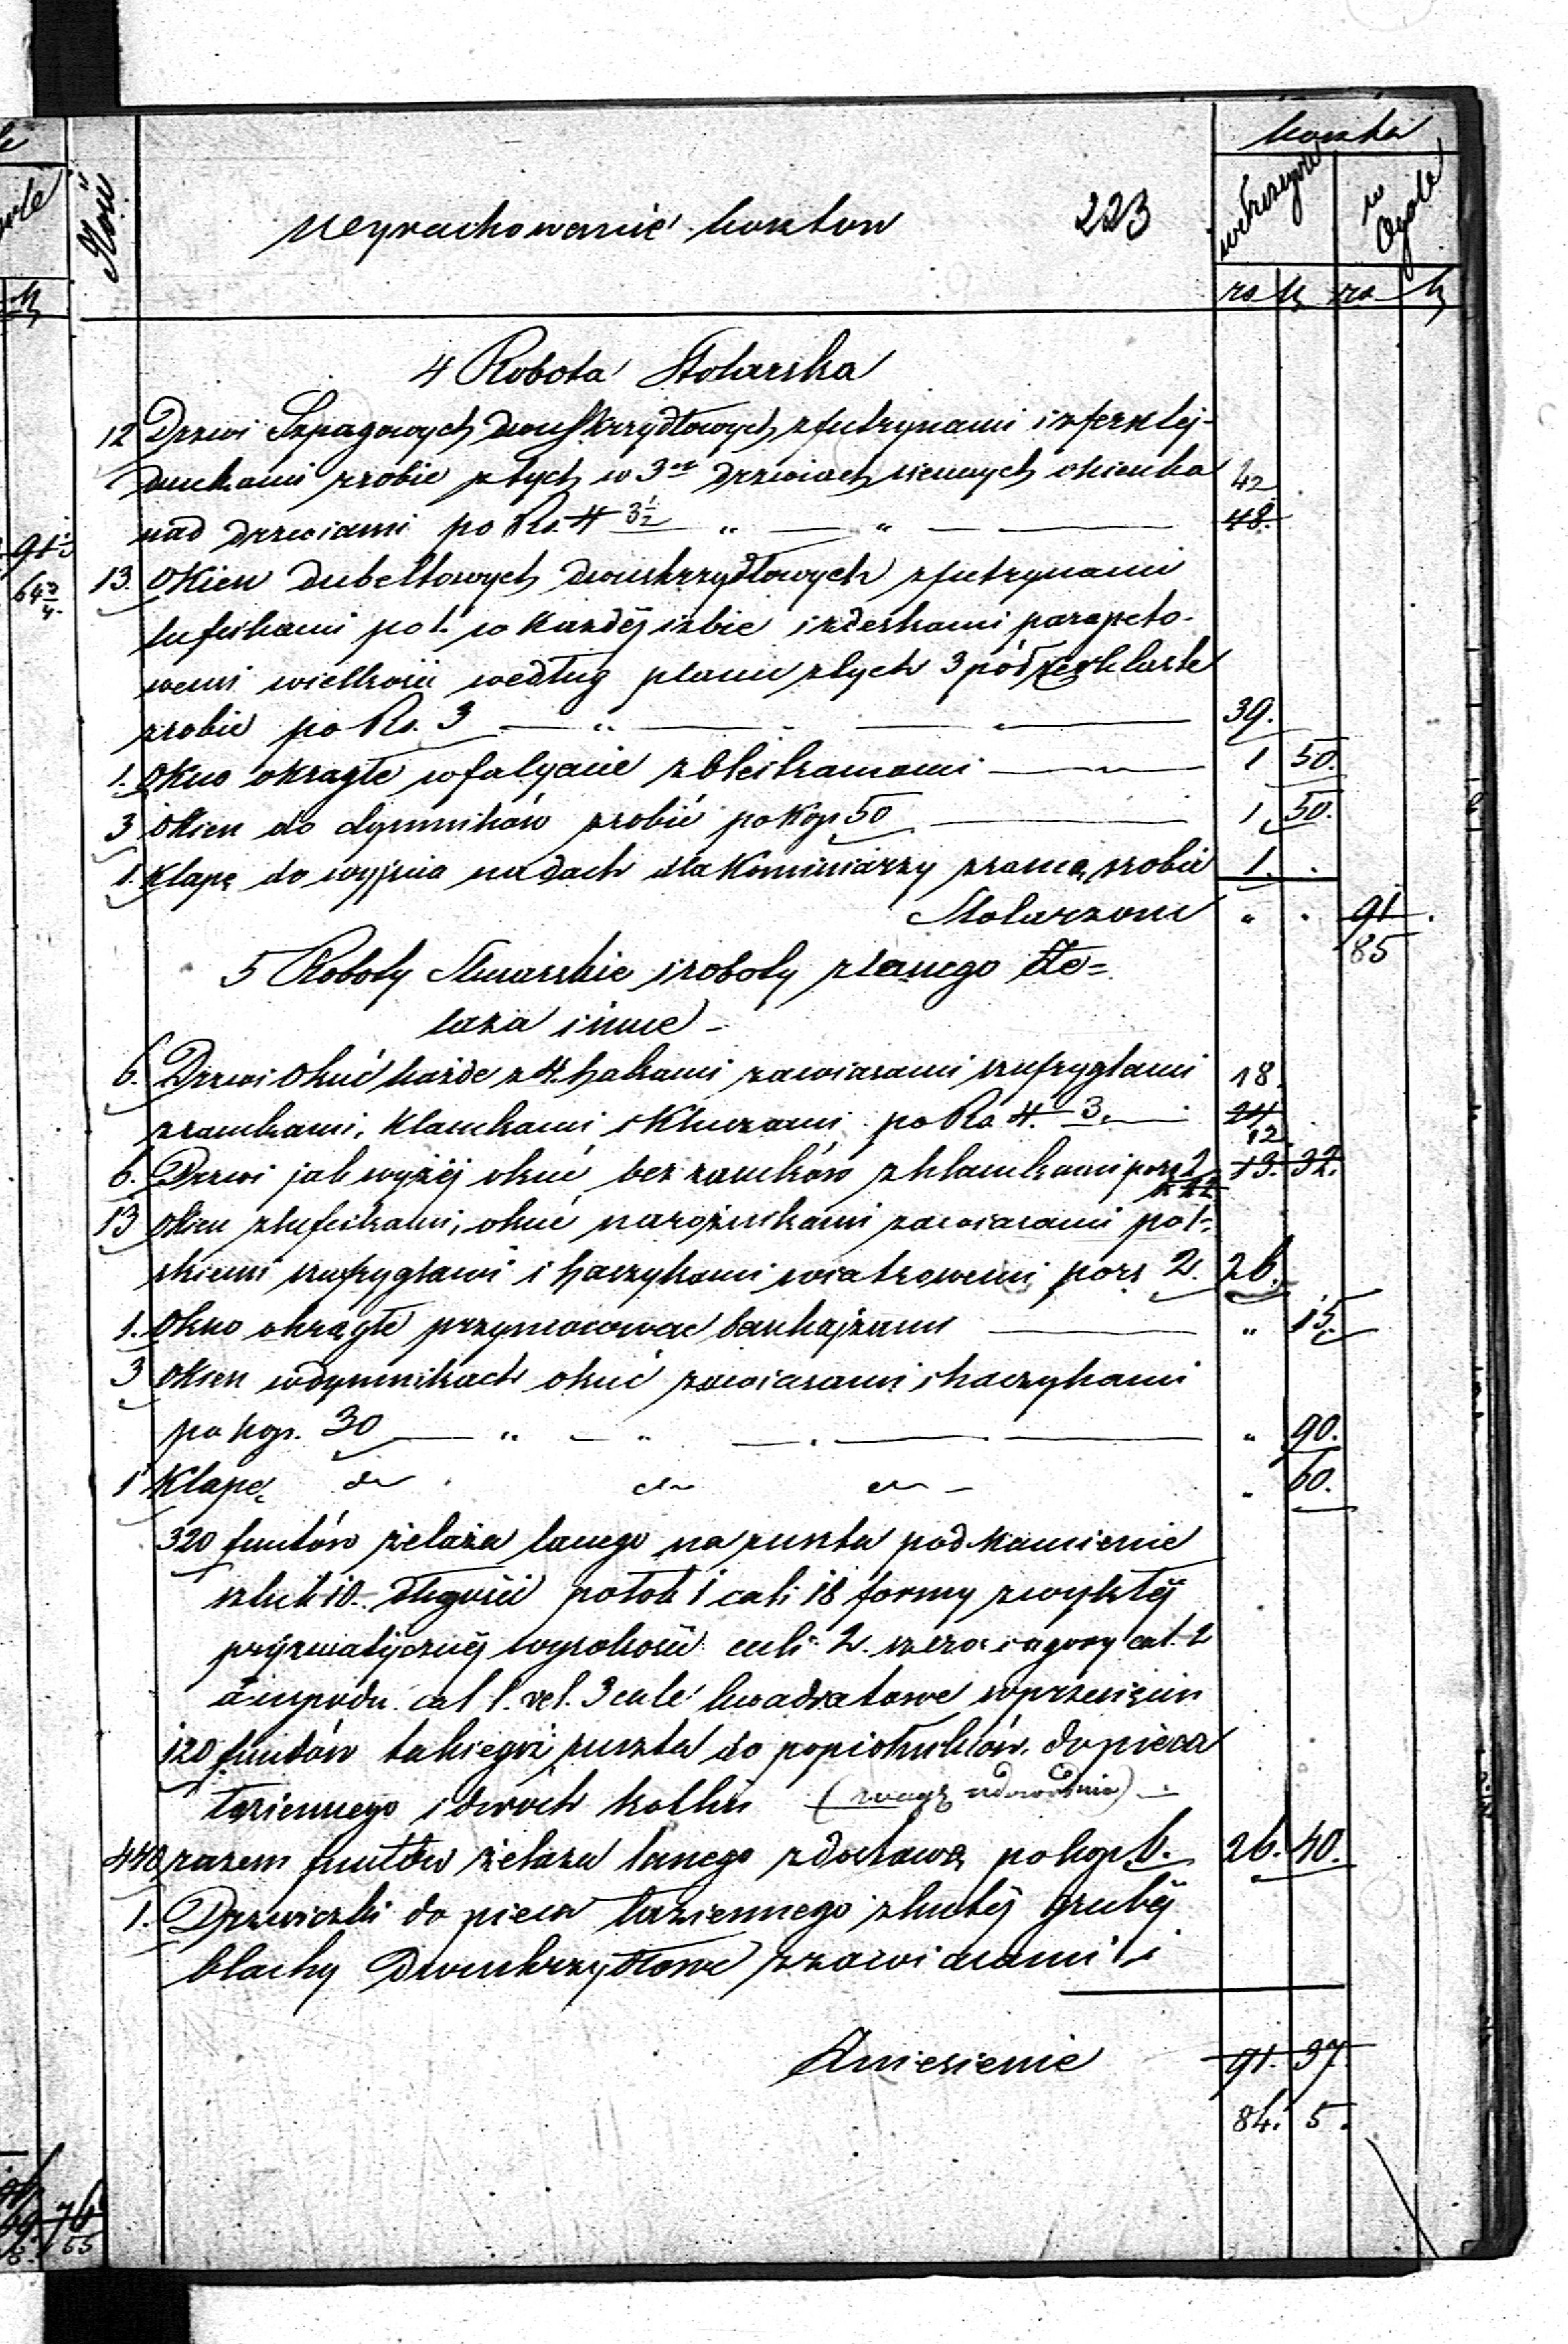 koszta
Ilość
Wyrachowanie kosztow 223
w szczególe
w Ogole
rs k rs k
4 Robota Stolarska
12 Drzwi Szpagowych dwuskrzydłowych z futrynami i z ferklej-
dunkami zrobic z tych w 3ch drzwiach siennych okienka 42
nad drzwiami po Rs. 4 3½ " — " — 48.
13. Okien dubeltowych dwuskrzydłowych z futrynami
lufcikami po 1. w każdéj izbie i z deskami parapeto-
wemi wielkości według planu z tych 3 pół
zrobic po Rs. 3 — " — 39.
1. Okno okrągłe w facyacie z blejtramami — 1 50.
3 Okien do dymników zrobić po Kop 50 — 1 50.
1. Klapę do wyjścia na dach dla Kominiarzy z ramą zrobic 1. .
Stolarzowi " . 91 .
85
5 Roboty Slusarskie i roboty z lanego że=
laza i inne -
6. Drzwi Okuć każde z 4. hakami zawiasami szufryglami 18.
zamkami, klamkami i Kluczami po Rs. 4. 3. — 24
12
6. Drzwi jak wyżéj okuć bez zamków z klamkami po rs 2 13. 32.
13 Okien z lufcikami, okuć narożnikami zawiasami pol-
skiemi szufryglami i haczykami wiatrowemi po rs 2. 26.
1. Okno okrągłe przymocować bankajzami — " 15.
3 Okien w dymnikach okuć zawiasami i haczykami
po kop. 30 — " — " — . — " 90.
1 Klapę do . do do - " 60.
320 funtów żelaza lanego na ruszta pod Kamienie
sztuk 10. długości po łok 1 cali 18 formy zwykłéj
pryzmatycznéj wysokości cali 2. szeroś z góry cal. 2
a u spodu cal 1. vel. 3 cale kwadratowe w przecięciu
120 funtów takiegoż ruszta do popielników, do pieca
łaziennego i dwóch kotłów (wagę udowodnic) —
440 razem funtów żelaza lanego z dostawą po kop 6. 26. 40.
1. Drzwiczki do pieca łaziennego z kutéj grubéj
blachy Dwuskrzydłowe z zawiasami i
Zniesienie 91. 37.
84. 5.